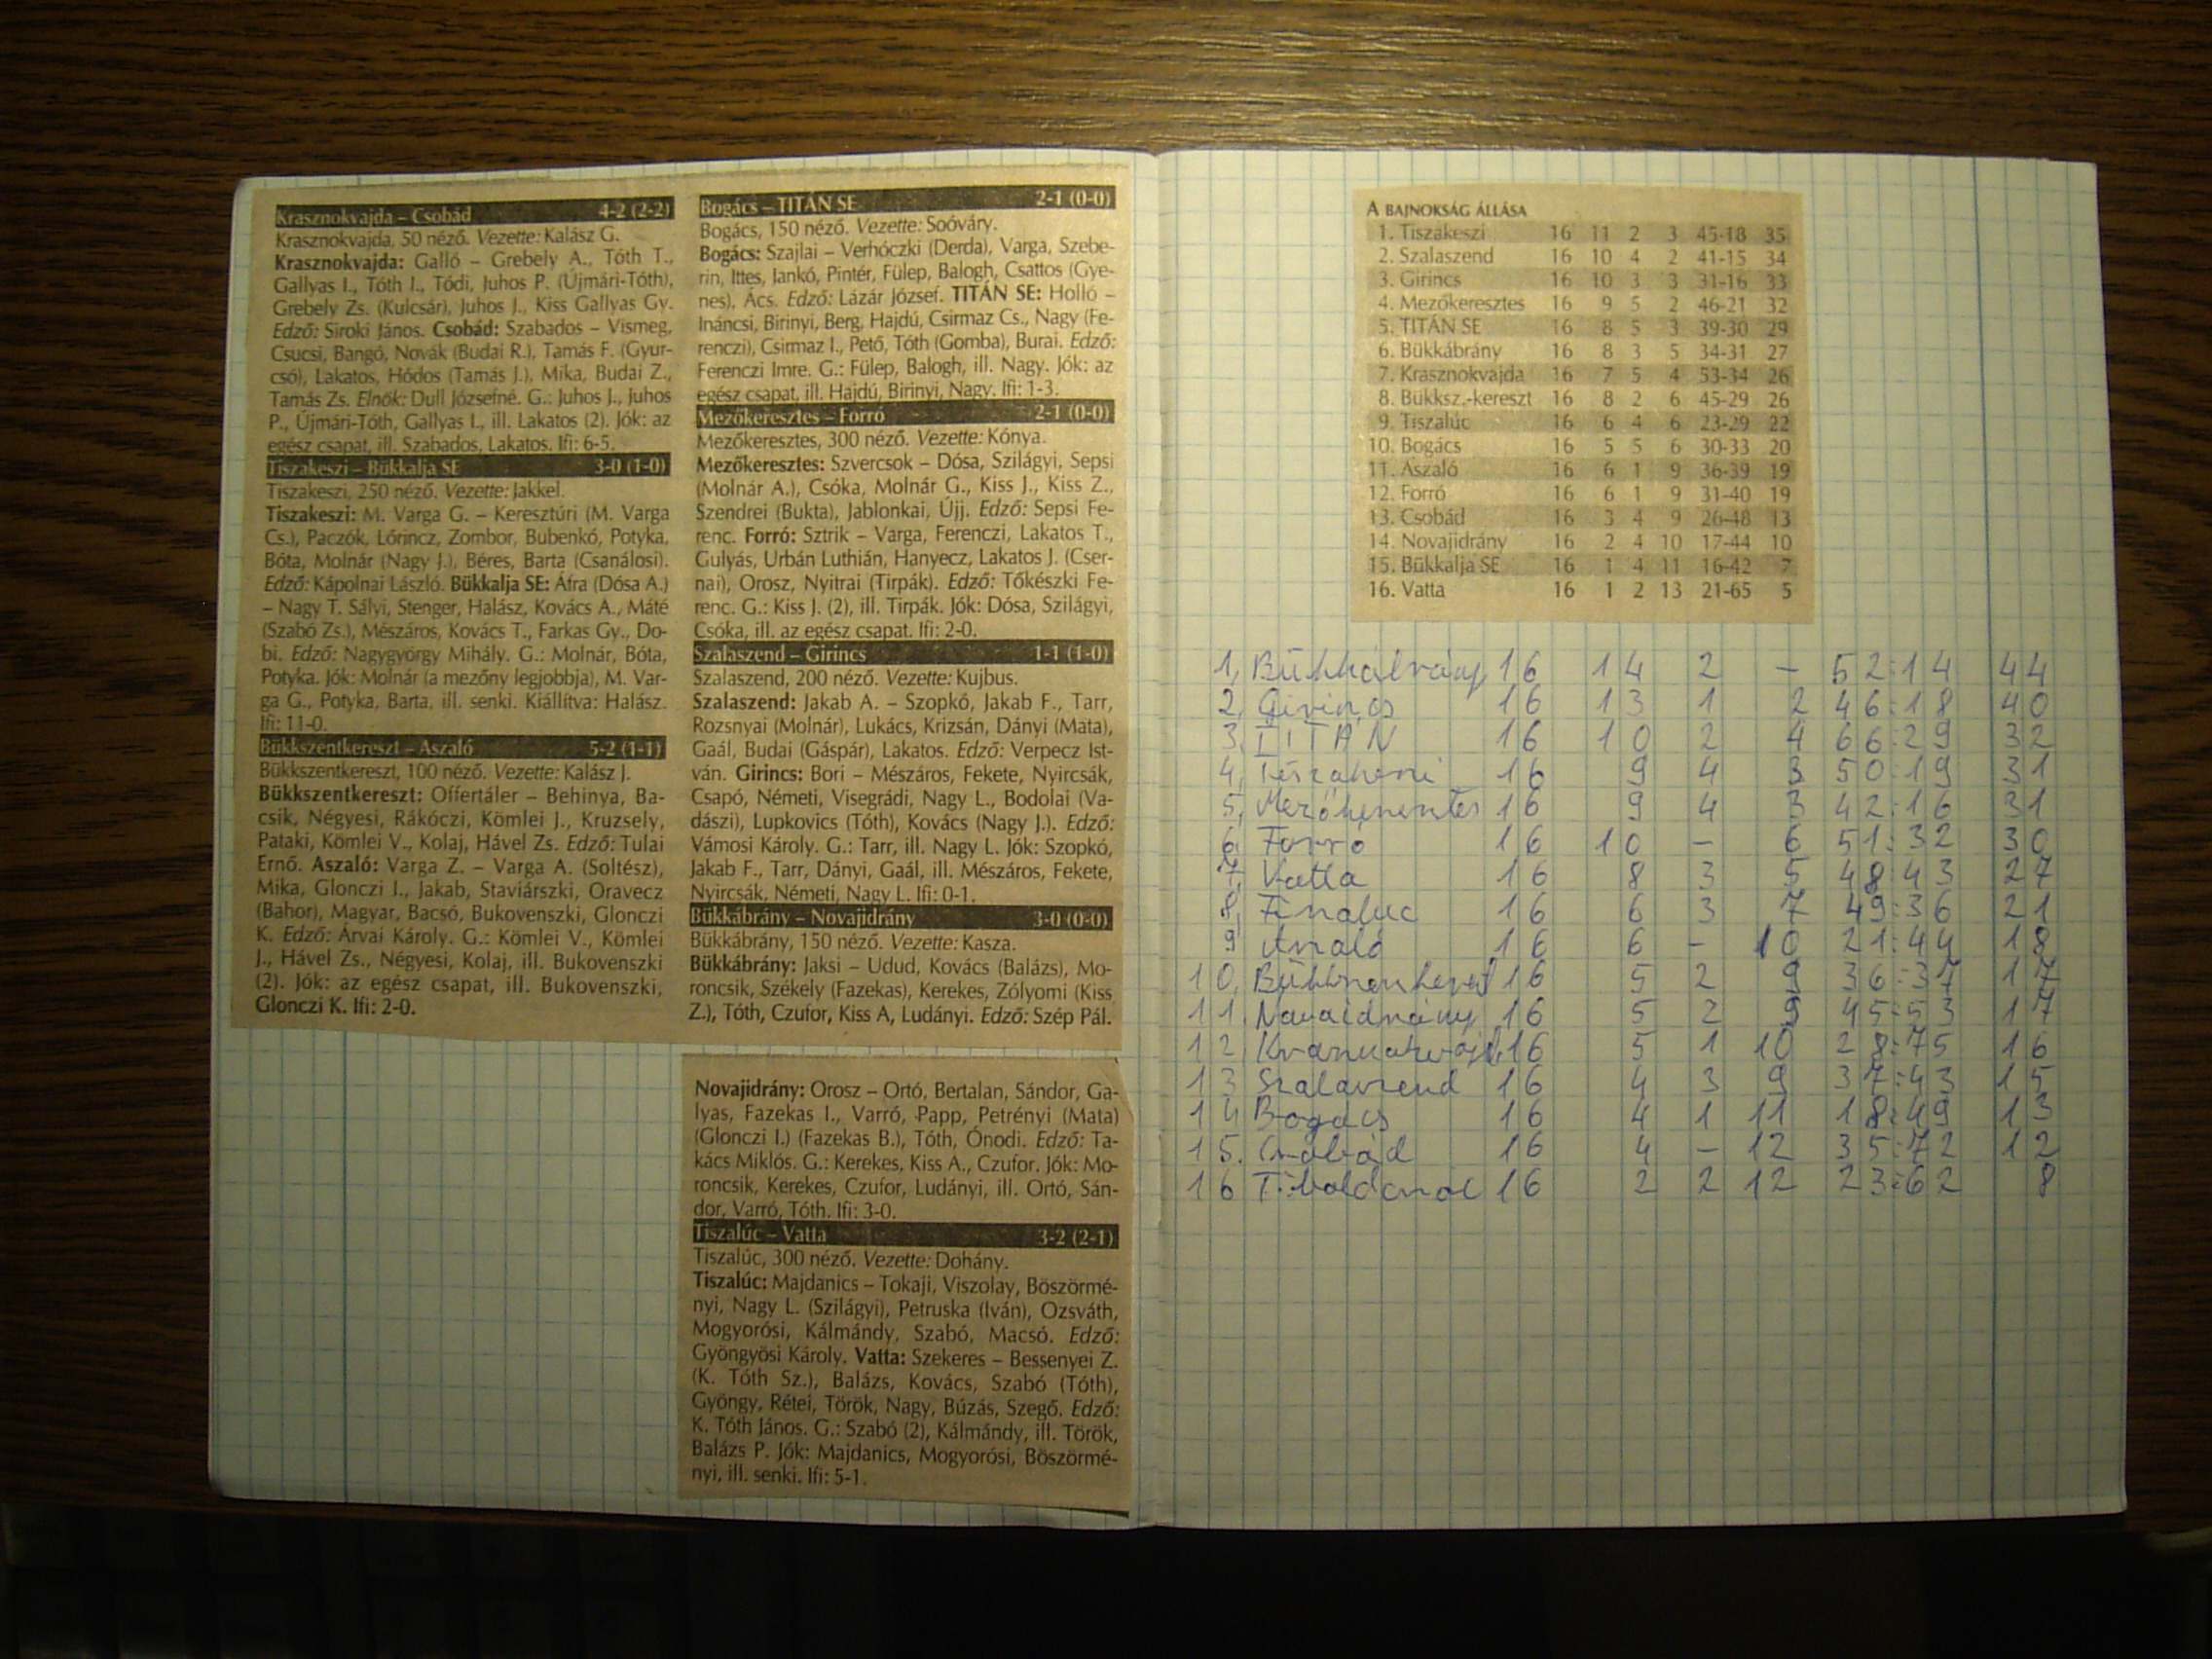 Krasznokvajda – Csobád 4-2 (2-2)
Krasznokvajda, 50 néző. Vezette: Kalász G.
Krasznokvajda: Galló – Grebely A., Tóth T.,
Gallyas I., Tóth I., Tódi, Juhos P. (Újmári-Tóth),
Grebely Zs. (Kulcsár), Juhos J., Kiss Gallyas Gy.
Edző: Siroki János. Csobád: Szabados – Vismeg,
Csucsi, Bangó, Novák (Budai R.), Tamás F. (Gyur-
csó), Lakatos, Hódos (Tamás J.), Mika, Budai Z.,
Tamás Zs. Elnök: Dull Józsefné. G.: Juhos J., Juhos
P., Újmári-Tóth, Gallyas I., ill. Lakatos (2). Jók: az
egész csapat, ill. Szabados, Lakatos. Ifi: 6-5.
Tiszakeszi – Bükkalja SE 3-0 (1-0)
Tiszakeszi, 250 néző. Vezette: Jakkel.
Tiszakeszi: M. Varga G. – Keresztúri (M. Varga
Cs.), Paczók, Lőrincz, Zombor, Bubenkó, Potyka,
Bóta, Molnár (Nagy J.), Béres, Barta (Csanálosi).
Edző: Kápolnai László. Bükkalja SE: Átra (Dósa A.)
– Nagy T. Sályi, Stenger, Halász, Kovács A., Máté
(Szabó Zs.), Mészáros, Kovács T., Farkas Gy., Do-
bi. Edző: Nagygyörgy Mihály. G.: Molnár, Bóta,
Potyka. Jók: Molnár (a mezőny legjobbja), M. Var-
ga G., Potyka, Barta, ill. senki. Kiállítva: Halász.
Ifi: 11-0.
Bükkszentkereszt – Aszaló 5-2 (1-1)
Bükkszentkereszt, 100 néző. Vezette: Kalász J.
Bükkszentkereszt: Offertáler – Behinya, Ba-
csik, Négyesi, Rákóczi, Kömlei J., Kruzsely,
Pataki, Kömlei V., Kolaj, Hável Zs. Edző: Tulai
Ernő. Aszaló: Varga Z. – Varga A. (Soltész),
Mika, Glonczi I., Jakab, Staviárszki, Oravecz
(Bahor), Magyar, Bacsó, Bukovenszki, Glonczi
K. Edző: Árvai Károly. G.: Kömlei V., Kömlei
J., Hável Zs., Négyesi, Kolaj, ill. Bukovenszki
(2). Jók: az egész csapat, ill. Bukovenszki,
Glonczi K. Ifi: 2-0.
Bogács – TITÁN SE 2-1 (0-0)
Bogács, 150 néző. Vezette: Soóváry.
Bogács: Szajlai – Verhóczki (Derda), Varga, Szebe-
rin, Ittes, Jankó, Pintér, Fülep, Balogh, Csattos (Gye-
nes), Ács. Edző: Lázár József. TITÁN SE: Holló –
Ináncsi, Birinyi, Berg, Hajdú, Csirmaz Cs., Nagy (Fe-
renczi), Csirmaz I., Pető, Tóth (Gomba), Burai. Edző:
Ferenczi Imre. G.: Fülep, Balogh, ill. Nagy. Jók: az
egész csapat, ill. Hajdú, Birinyi, Nagy. Ifi: 1-3.
Mezőkeresztes – Forró 2-1 (0-0)
Mezőkeresztes, 300 néző. Vezette: Kónya.
Mezőkeresztes: Szvercsok – Dósa, Szilágyi, Sepsi
(Molnár A.), Csóka, Molnár G., Kiss J., Kiss Z.,
Szendrei (Bukta), Jablonkai, Újj. Edző: Sepsi Fe-
renc. Forró: Sztrik – Varga, Ferenczi, Lakatos T.,
Gulyás, Urbán Luthián, Hanyecz, Lakatos J. (Cser-
nai), Orosz, Nyitrai (Tirpák). Edző: Tőkészki Fe-
renc. G.: Kiss J. (2), ill. Tirpák. Jók: Dósa, Szilágyi,
Csóka, ill. az egész csapat. Ifi: 2-0.
Szalaszend – Girincs 1-1 (1-0)
Szalaszend, 200 néző. Vezette: Kujbus.
Szalaszend: Jakab A. – Szopkó, Jakab F., Tarr,
Rozsnyai (Molnár), Lukács, Krizsán, Dányi (Mata),
Gaál, Budai (Gáspár), Lakatos. Edző: Verpecz Ist-
ván. Girincs: Bori – Mészáros, Fekete, Nyircsák,
Csapó, Németi, Visegrádi, Nagy L., Bodolai (Va-
dászi), Lupkovics (Tóth), Kovács (Nagy J.). Edző:
Vámosi Károly. G.: Tarr, ill. Nagy L. Jók: Szopkó,
Jakab F., Tarr, Dányi, Gaál, ill. Mészáros, Fekete,
Nyircsák, Németi, Nagy L. Ifi: 0-1.
Bükkábrány – Novajidrány 3-0 (0-0)
Bükkábrány, 150 néző. Vezette: Kasza.
Bükkábrány: Jaksi – Udud, Kovács (Balázs), Mo-
roncsik, Székely (Fazekas), Kerekes, Zólyomi (Kiss
Z.), Tóth, Czufor, Kiss A, Ludányi. Edző: Szép Pál.
Novajidrány: Orosz – Ortó, Bertalan, Sándor, Ga-
lyas, Fazekas I., Varró, Papp, Petrényi (Mata)
(Glonczi I.) (Fazekas B.), Tóth, Ónodi. Edző: Ta-
kács Miklós. G.: Kerekes, Kiss A., Czufor. Jók: Mo-
roncsik, Kerekes, Czufor, Ludányi, ill. Ortó, Sán-
dor, Varró, Tóth. Ifi: 3-0.
Tiszalúc – Vatta 3-2 (2-1)
Tiszalúc, 300 néző. Vezette: Dohány.
Tiszalúc: Majdanics – Tokaji, Viszolay, Böszörmé-
nyi, Nagy L. (Szilágyi), Petruska (Iván), Ozsváth,
Mogyorósi, Kálmándy, Szabó, Macsó. Edző:
Gyöngyösi Károly. Vatta: Szekeres – Bessenyei Z.
(K. Tóth Sz.), Balázs, Kovács, Szabó (Tóth),
Gyöngy, Rétei, Török, Nagy, Búzás, Szegő. Edző:
K. Tóth János. G.: Szabó (2), Kálmándy, ill. Török,
Balázs P. Jók: Majdanics, Mogyorósi, Böszörmé-
nyi, ill. senki. Ifi: 5-1.
A BAJNOKSÁG ÁLLÁSA
1. Tiszakeszi 16 11 2 3 45-18 35
2. Szalaszend 16 10 4 2 41-15 34
3. Girincs 16 10 3 3 31-16 33
4. Mezőkeresztes 16 9 5 2 46-21 32
5. TITÁN SE 16 8 5 3 39-30 29
6. Bükkábrány 16 8 3 5 34-31 27
7. Krasznokvajda 16 7 5 4 53-34 26
8. Bükksz.-kereszt 16 8 2 6 45-29 26
9. Tiszalúc 16 6 4 6 23-29 22
10. Bogács 16 5 5 6 30-33 20
11. Aszaló 16 6 1 9 36-39 19
12. Forró 16 6 1 9 31-40 19
13. Csobád 16 3 4 9 26-48 13
14. Novajidrány 16 2 4 10 17-44 10
15. Bükkalja SE 16 1 4 11 16-42 7
16. Vatta 16 1 2 13 21-65 5
1, Bükkábrány 16 14 2 – 52:14 44
2, Girincs 16 13 1 2 46:18 40
3, TITÁN 16 10 2 4 66:29 32
4, Tiszakeszi 16 9 4 3 50:19 31
5, Mezőkeresztes 16 9 4 3 42:16 31
6, Forró 16 10 – 6 51:32 30
7, Vatta 16 8 3 5 48:43 27
8, Tiszaluc 16 6 3 7 49:36 21
9 Aszaló 16 6 – 10 21:44 18
10, 16 5 2 9 36:37 17
11. Novaidrány 16 5 2 9 45:53 17
12 16 5 1 10 28:75 16
13 Szalaszend 16 4 3 9 37:43 15
14 Bogács 16 4 1 11 18:49 13
15. Csobád 16 4 – 12 35:72 12
16 16 2 2 12 23:62 8